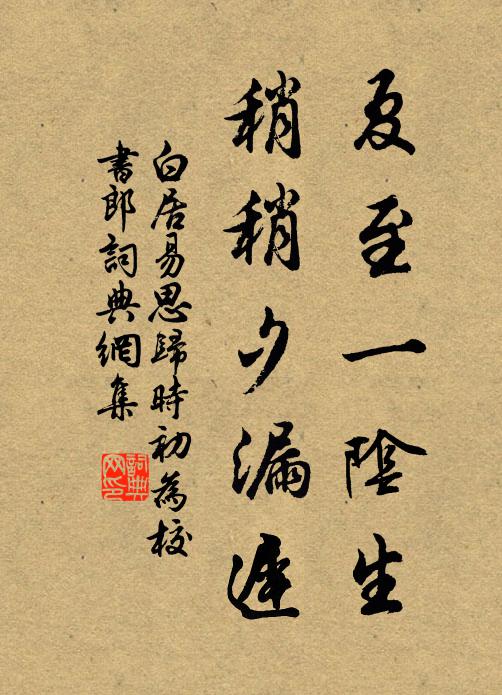 夏至一陰生
稍稍夕漏遲
白居易思歸時初為校
書郎詞典網集
詞典网印